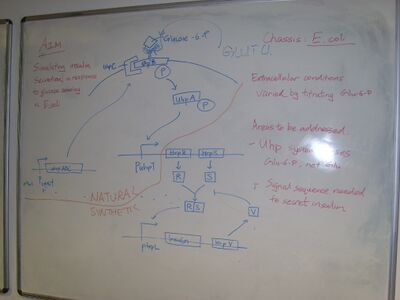 AIM
Simulating insulin
secretion in response
to glucose sensing
in E.coli
Glucose-6-P
GLUT 2
UhpC
UhpB
P
UhpA
P
Chassis: E. coli
Extracellular conditions
varied by titrating Glu-6-P
Areas to be addressed
- Uhp system uses
Glu-6-P, not glu
Signal sequence needed
to secrete insulin
PuhpT
hrpR
hrpS
R
S
uhpABC
NATURAL
SYNTHETIC
R S
V
phrpL
Insulin
hrpV